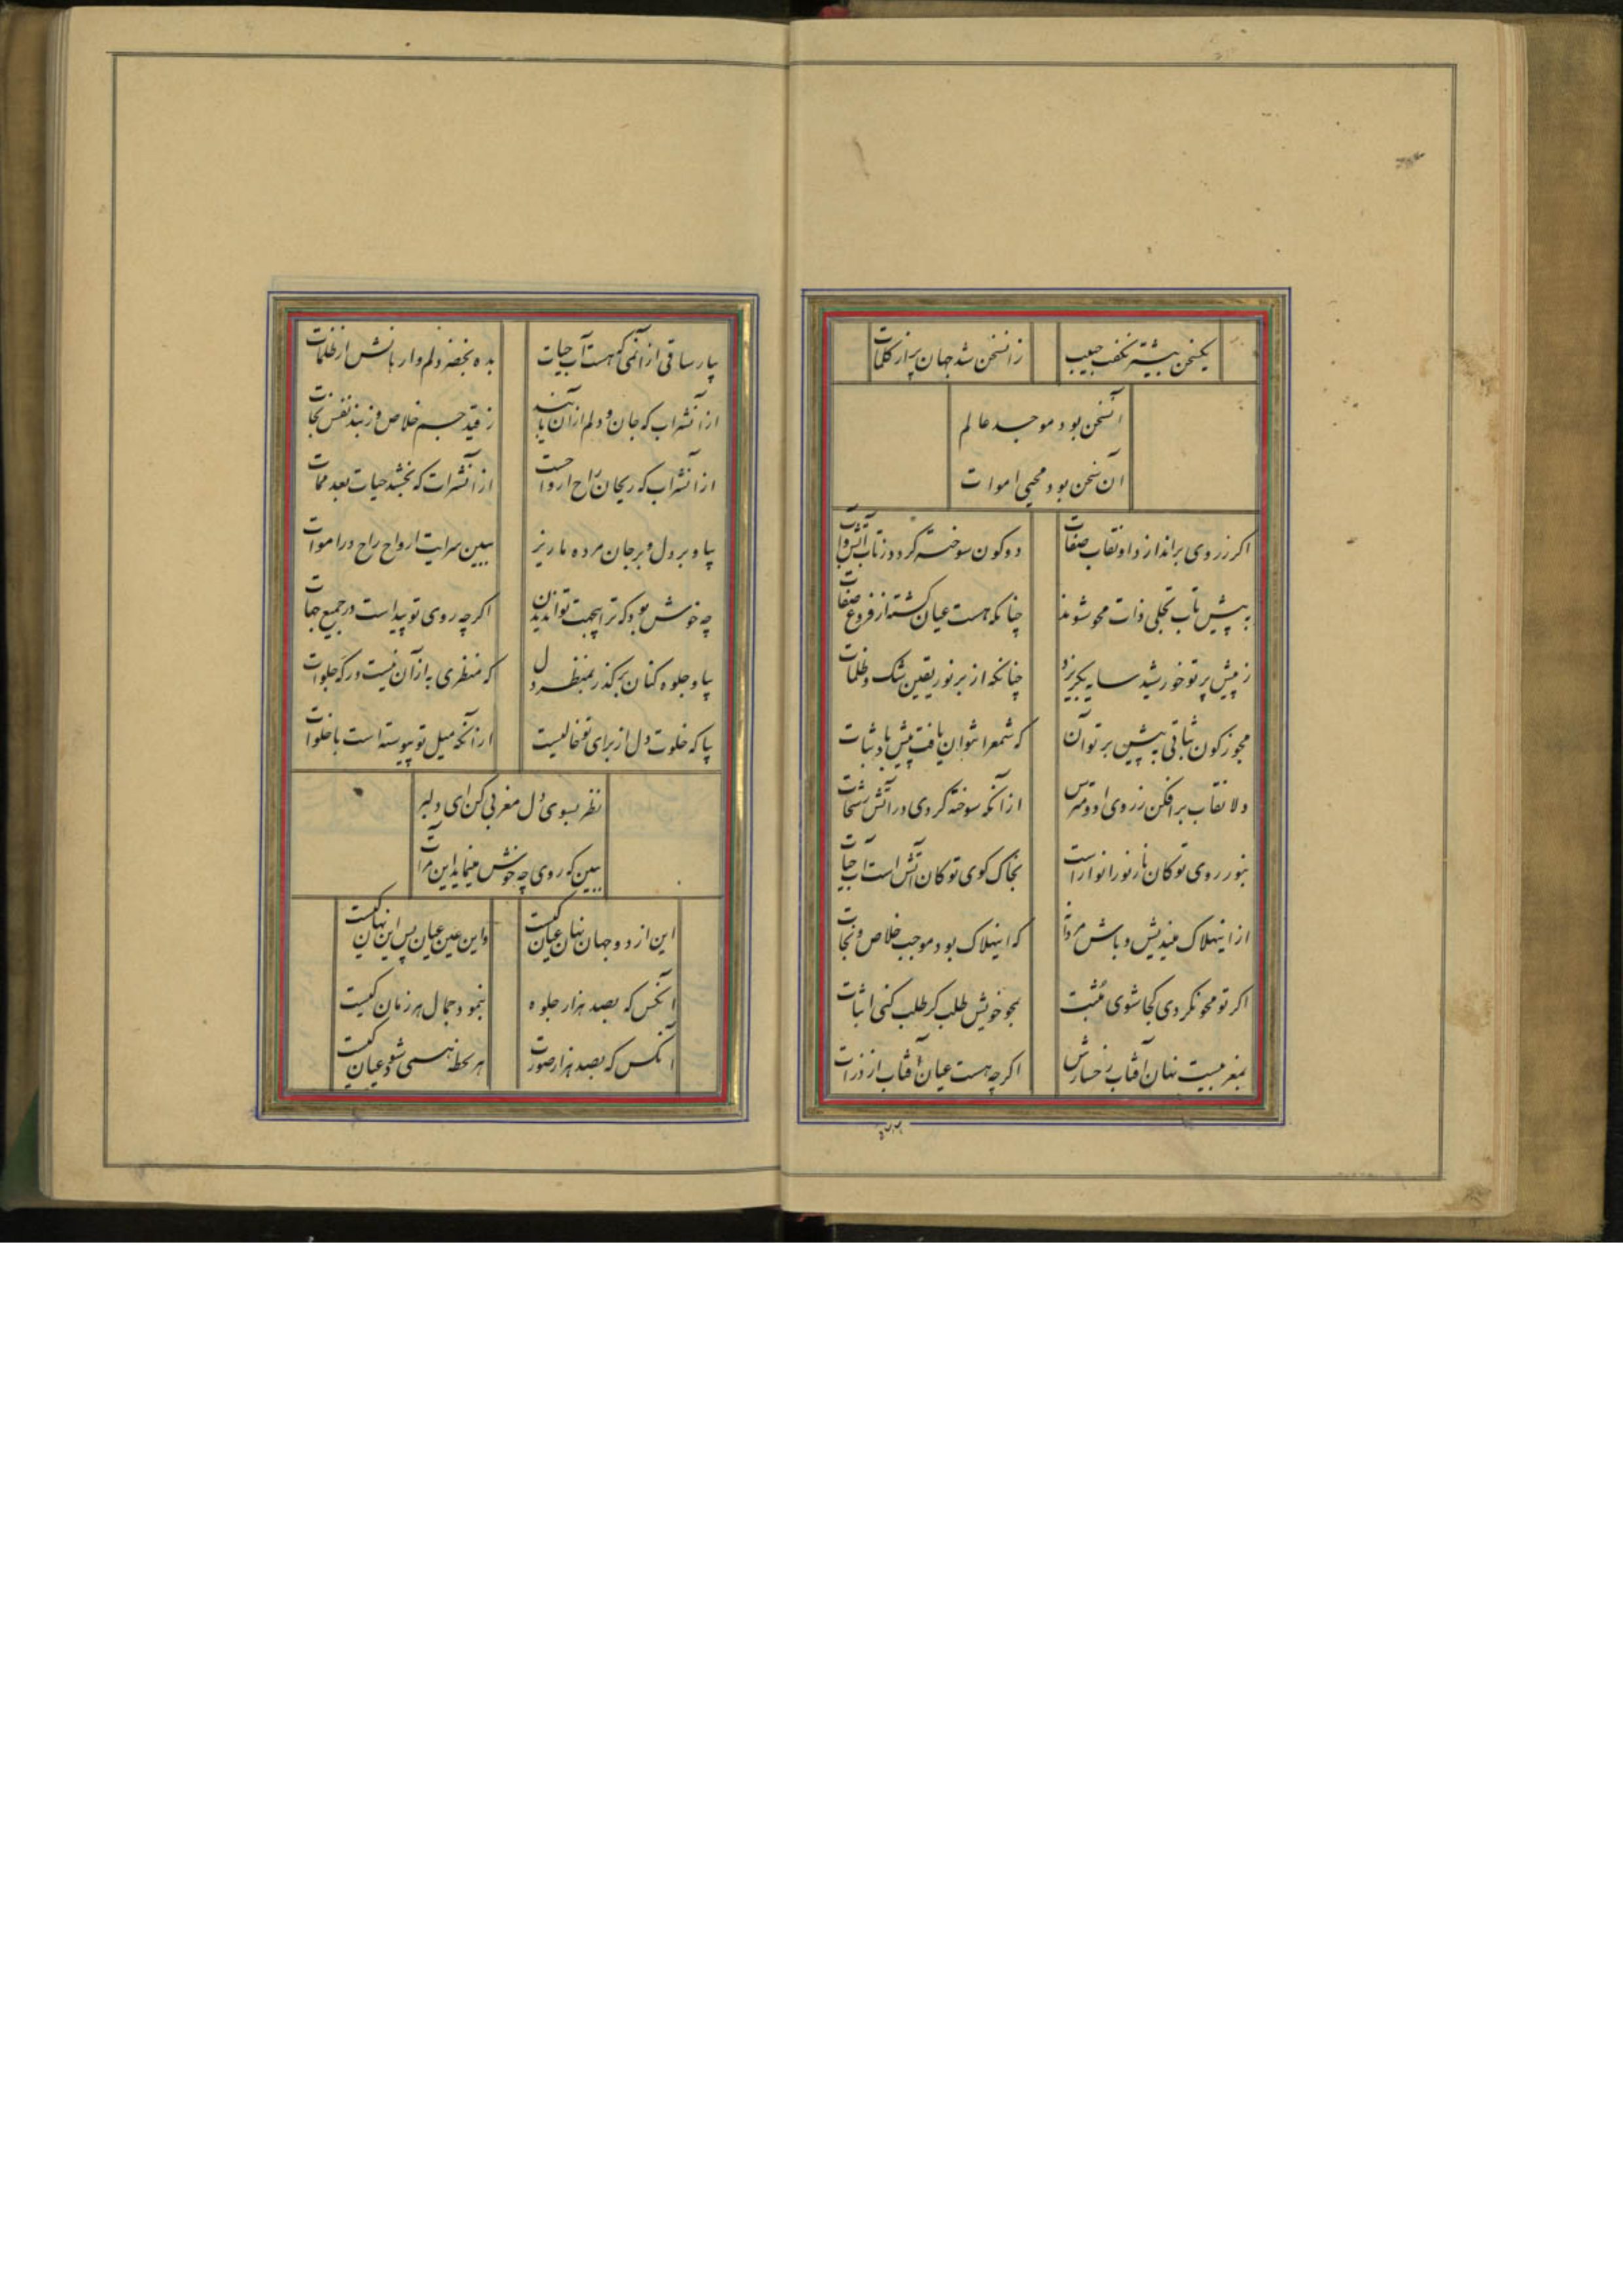 یکسخن بیشتر نگفت حبیب
زانسخن شد جهان پراز کلمات
آنسخن بود موجد عالم
آن سخن بود محیی اموات
اگر زروی براندازد او نقاب صفات
دو کون سوخته گردد زتاب آتش ذات
به پیش تاب تجلی ذات محو شوند
چنانکه هست عیان گشته از فروغ صفات
زپیش پرتو خورشید سایه بگریزد
چنانکه از بر نور یقین شک و ظلمات
مجوز کون ثباتی به پیش پرتو آن
که شمع را نتوان یافت پیش باد ثبات
دلا نقاب برافکن زروی او و مترس
از آنکه سوخته گردی در آتش سبحات
بنور روی تو کان نار نور انوار است
بخاک کوی تو کان آتش است آب حیات
از اینهلاک میندیش و باش مردانه
که اینهلاک بود موجب خلاص و نجات
اگر تو محو نگردی کجا شوی مثبت
بمحو خویش طلب کر طلب کنی اثبات
بمغربیست نهان آفتاب رخسارش
اگرچه هست عیان آفتاب از ذرات
بیار ساقی از آنمی که هست آب حیات
بده بخضر دلم وارهانش از ظلمات
از آنشراب که جان و دلم از آن یابند
زقید جسم خلاص و زبند نفس نجات
از آنشراب که ریحان راح ارواحست
از آنشرات که بخشد حیات بعد ممات
بیا و بر دل و بر جان مرده ما ریز
ببین سرایت ارواح راح در اموات
چه خوش بود که ترا بیجهت توان دیدن
اگرچه روی تو پیداست در جمیع جهات
بیا و جلوه کنان برگذر بمنظر دل
که منظری به از آن نیست در که جلوات
بیا که خلوت دل از برای تو خالیست
از آنکه میل تو پیوسته است با خلوات
نظر بسوی دل مغربی کن ای دلبر
ببین که روی چه خوش مینماید این مرآت
این از دو جهان نهان عیان کیست
واین عین عیان پس این نهان کیست
آنکس که بصد هزار جلوه
بنمود جمال هر زمان کیست
آنکس که بصد هزار صورت
هر لحظه همی شود عیان کیست